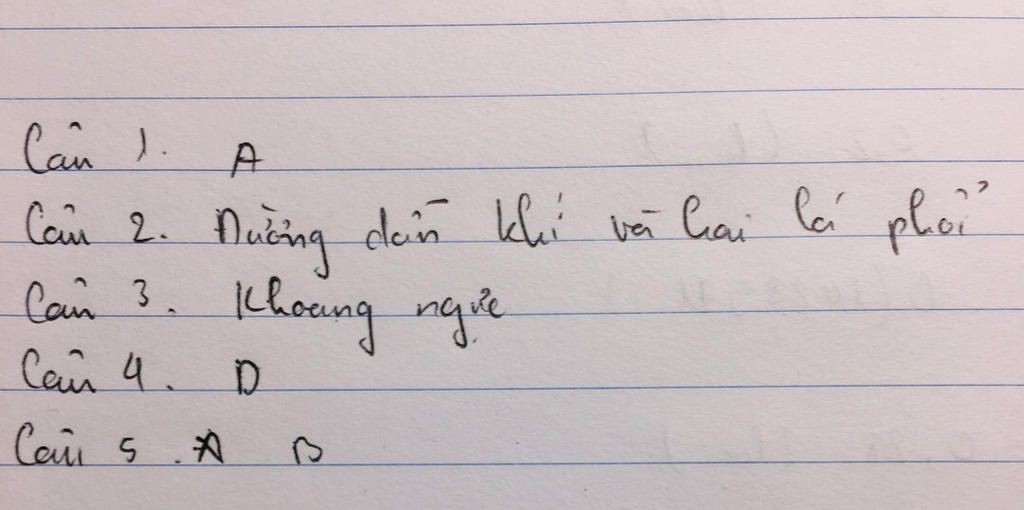 Câu 1. A
Câu 2. Đường dẫn khí và hai lá phổi
Câu 3. Khoang ngực
Câu 4. D
Câu 5. B